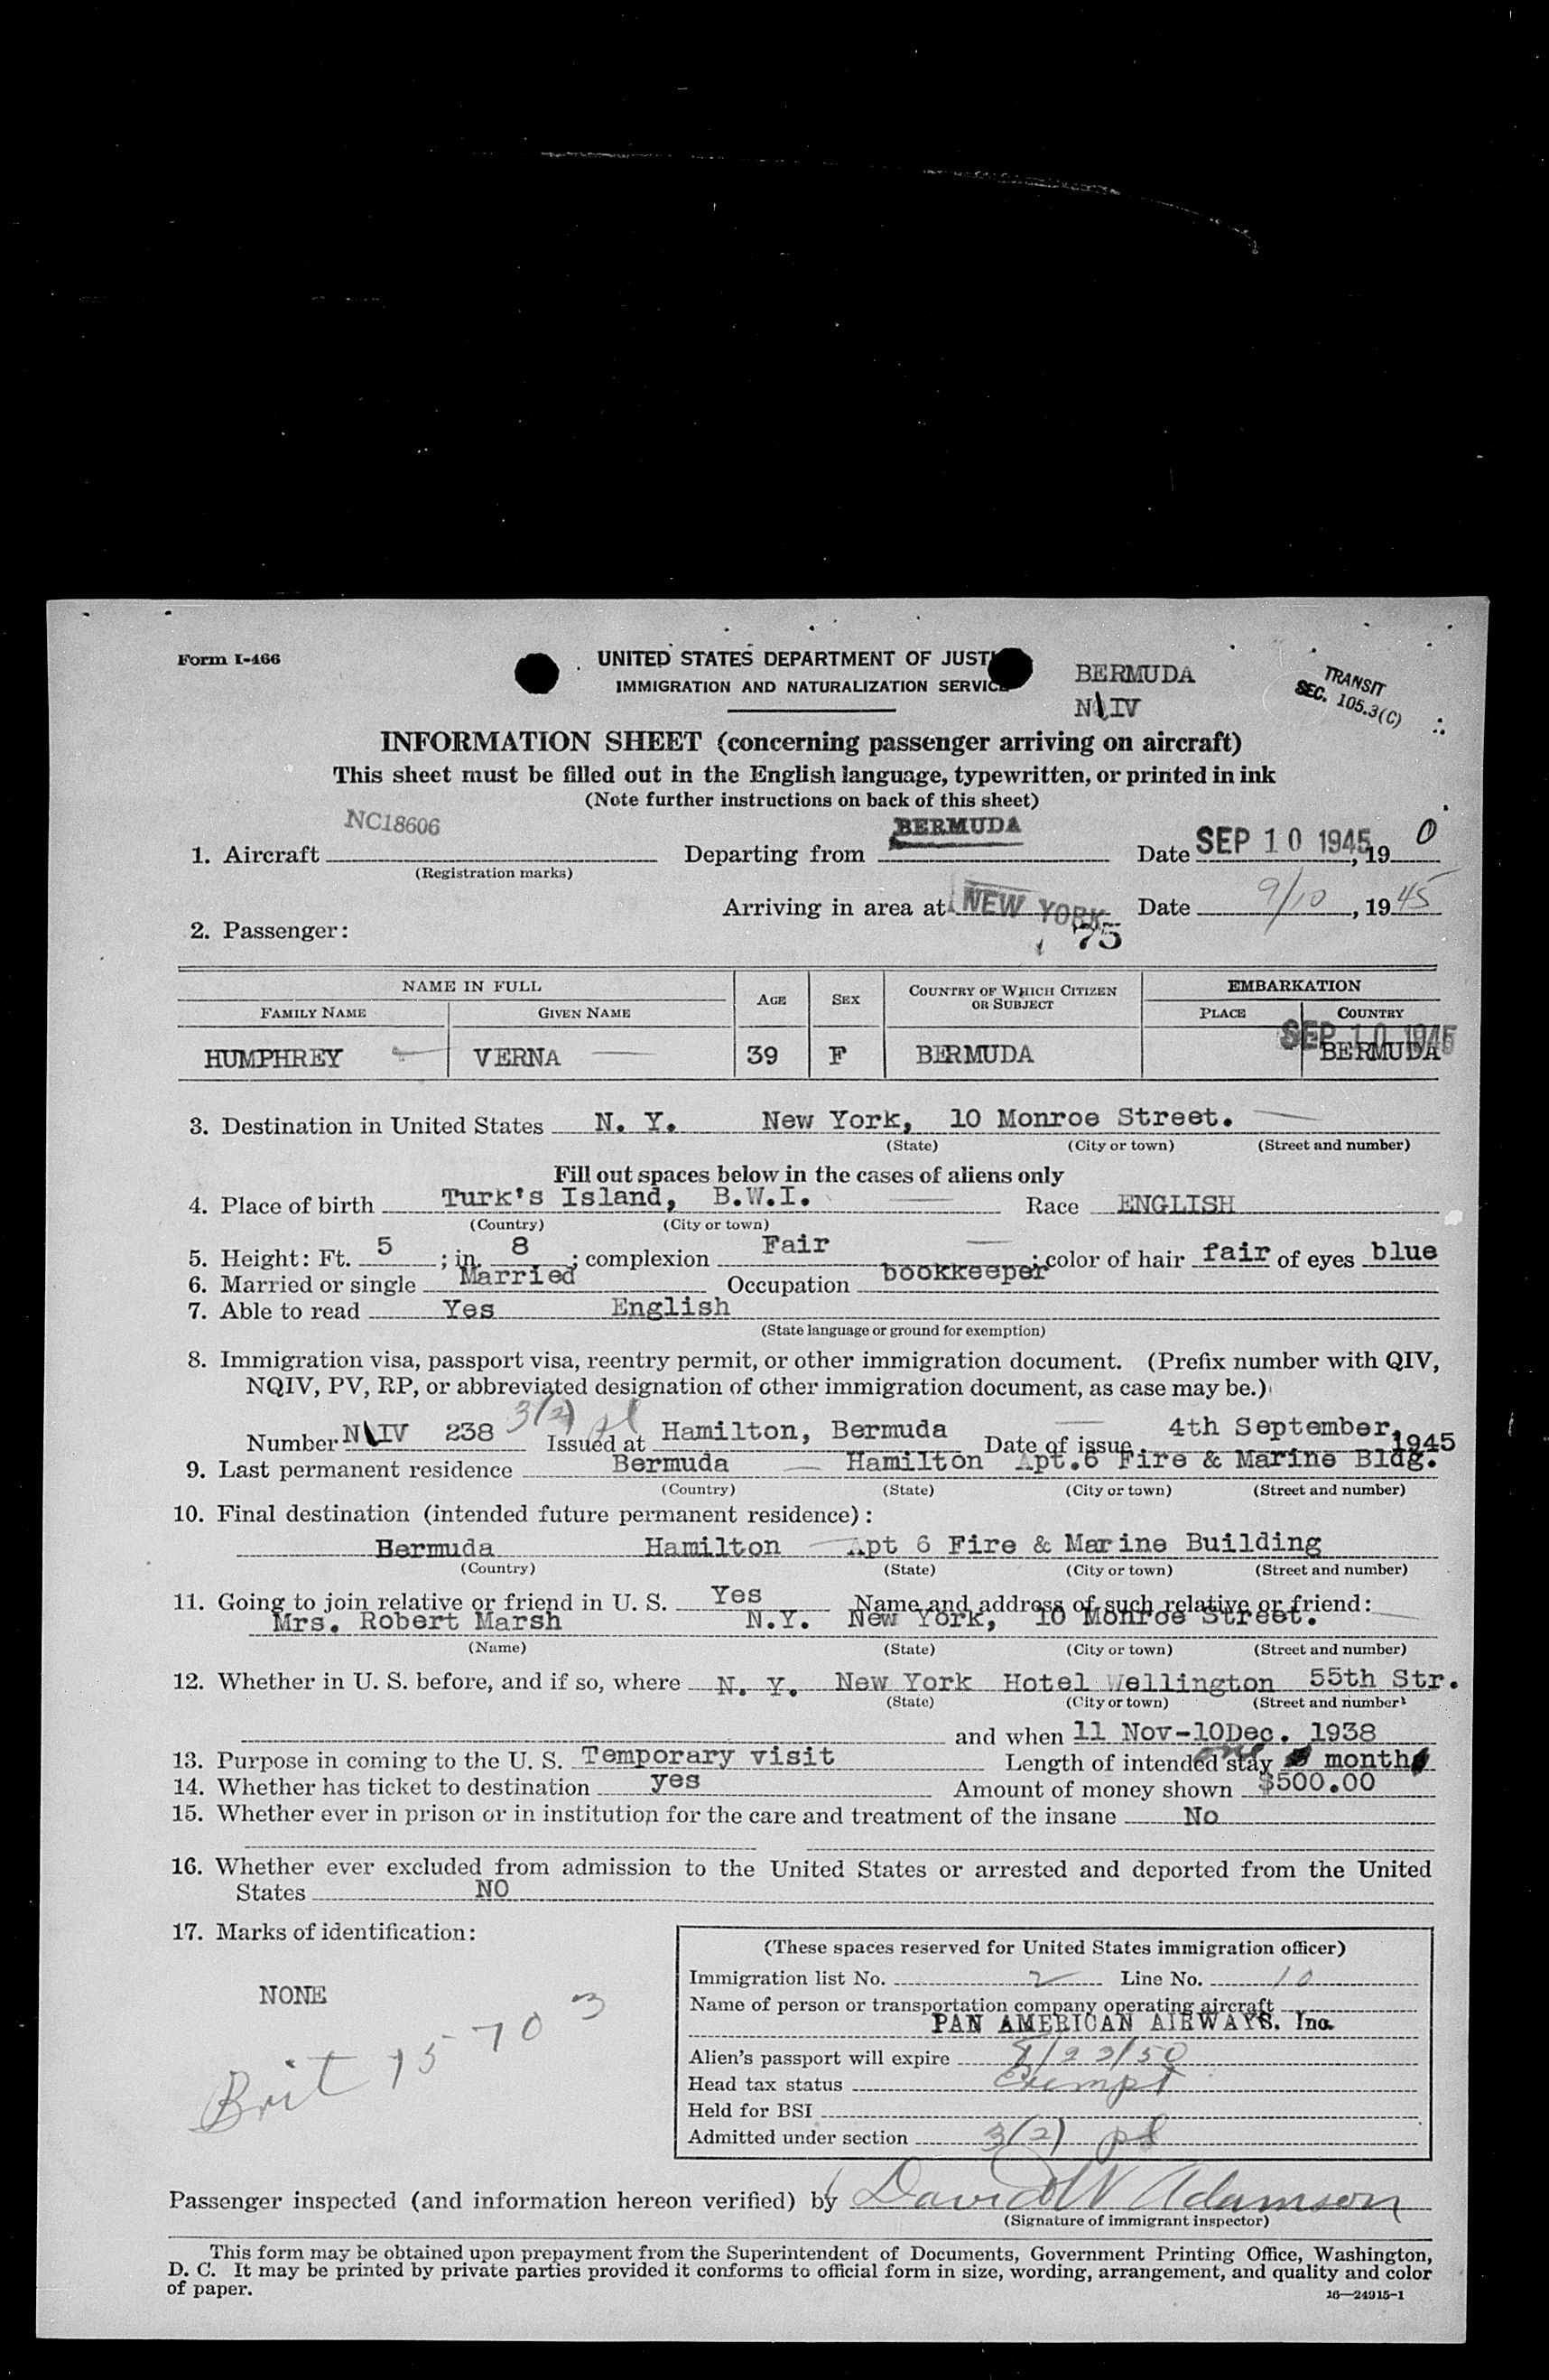 Form I-466
UNITED STATES DEPARTMENT OF JUSTI
IMMIGRATION AND NATURALIZATION SERVICE
BERMUDA
NIV
TRANSIT
SEC. 105.3(C)
INFORMATION SHEET (concerning passenger arriving on aircraft)
This sheet must be filled out in the English language, typewritten, or printed in ink
(Note further instructions on back of this sheet)
1. Aircraft NC18606 Departing from BERMUDA Date SEP 10 1945, 19 0
(Registration marks)
Arriving in area at NEW YORK Date 9/10, 19 45
75
2. Passenger:
NAME IN FULL AGE SEX COUNTRY OF WHICH CITIZEN OR SUBJECT EMBARKATION
FAMILY NAME GIVEN NAME PLACE COUNTRY
SEP 10 1945
HUMPHREY VERNA 39 F BERMUDA BERMUDA
3. Destination in United States N. Y. New York, 10 Monroe Street.
(State) (City or town) (Street and number)
Fill out spaces below in the cases of aliens only
4. Place of birth Turk's Island, B.W.I. Race ENGLISH
(Country) (City or town)
5. Height: Ft. 5; in. 8; complexion Fair; color of hair fair of eyes blue
6. Married or single Married Occupation bookkeeper
7. Able to read Yes English
(State language or ground for exemption)
8. Immigration visa, passport visa, reentry permit, or other immigration document. (Prefix number with QIV,
NQIV, PV, RP, or abbreviated designation of other immigration document, as case may be.)
3(2)
Number NIV 238 Issued at Hamilton, Bermuda Date of issue 4th September, 1945
9. Last permanent residence Bermuda Hamilton Apt.6 Fire & Marine Bldg.
(Country) (State) (City or town) (Street and number)
10. Final destination (intended future permanent residence):
Bermuda Hamilton Apt 6 Fire & Marine Building
(Country) (State) (City or town) (Street and number)
11. Going to join relative or friend in U. S. Yes Name and address of such relative or friend:
Mrs. Robert Marsh N.Y. New York, 10 Monroe Street.
(Name) (State) (City or town) (Street and number)
12. Whether in U. S. before, and if so, where N. Y. New York Hotel Wellington 55th Str.
(State) (City or town) (Street and number)
and when 11 Nov-10Dec. 1938
13. Purpose in coming to the U. S. Temporary visit Length of intended stay one month
14. Whether has ticket to destination yes Amount of money shown $500.00
15. Whether ever in prison or in institution for the care and treatment of the insane No
16. Whether ever excluded from admission to the United States or arrested and deported from the United
States NO
17. Marks of identification:
NONE
Brit 15703
(These spaces reserved for United States immigration officer)
Immigration list No. 2 Line No. 10
Name of person or transportation company operating aircraft
PAN AMERICAN AIRWAYS. Inc.
Alien's passport will expire 8/23/50
Head tax status Exempt
Held for BSI
Admitted under section 3(2)
Passenger inspected (and information hereon verified) by David W Adamson
(Signature of immigrant inspector)
This form may be obtained upon prepayment from the Superintendent of Documents, Government Printing Office, Washington,
D. C. It may be printed by private parties provided it conforms to official form in size, wording, arrangement, and quality and color
of paper.
16—24915-1